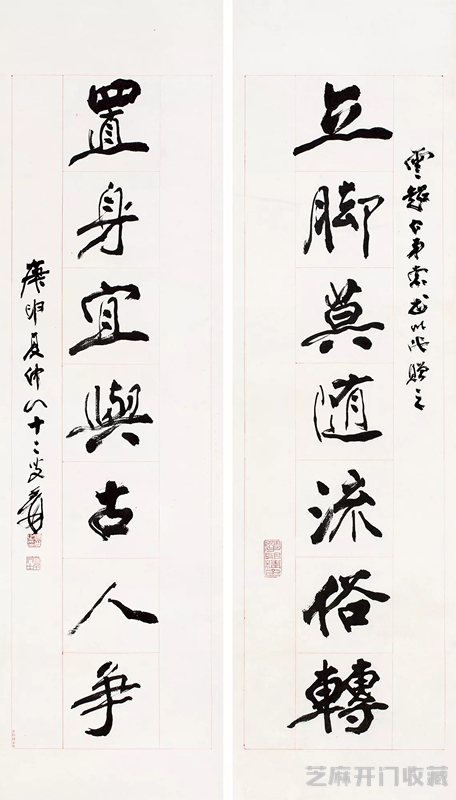 雲弟索書以此贈之
立脚莫随流俗轉
置身宜與古人争
庚申夏仲八十二叟爰
芝麻开门收藏